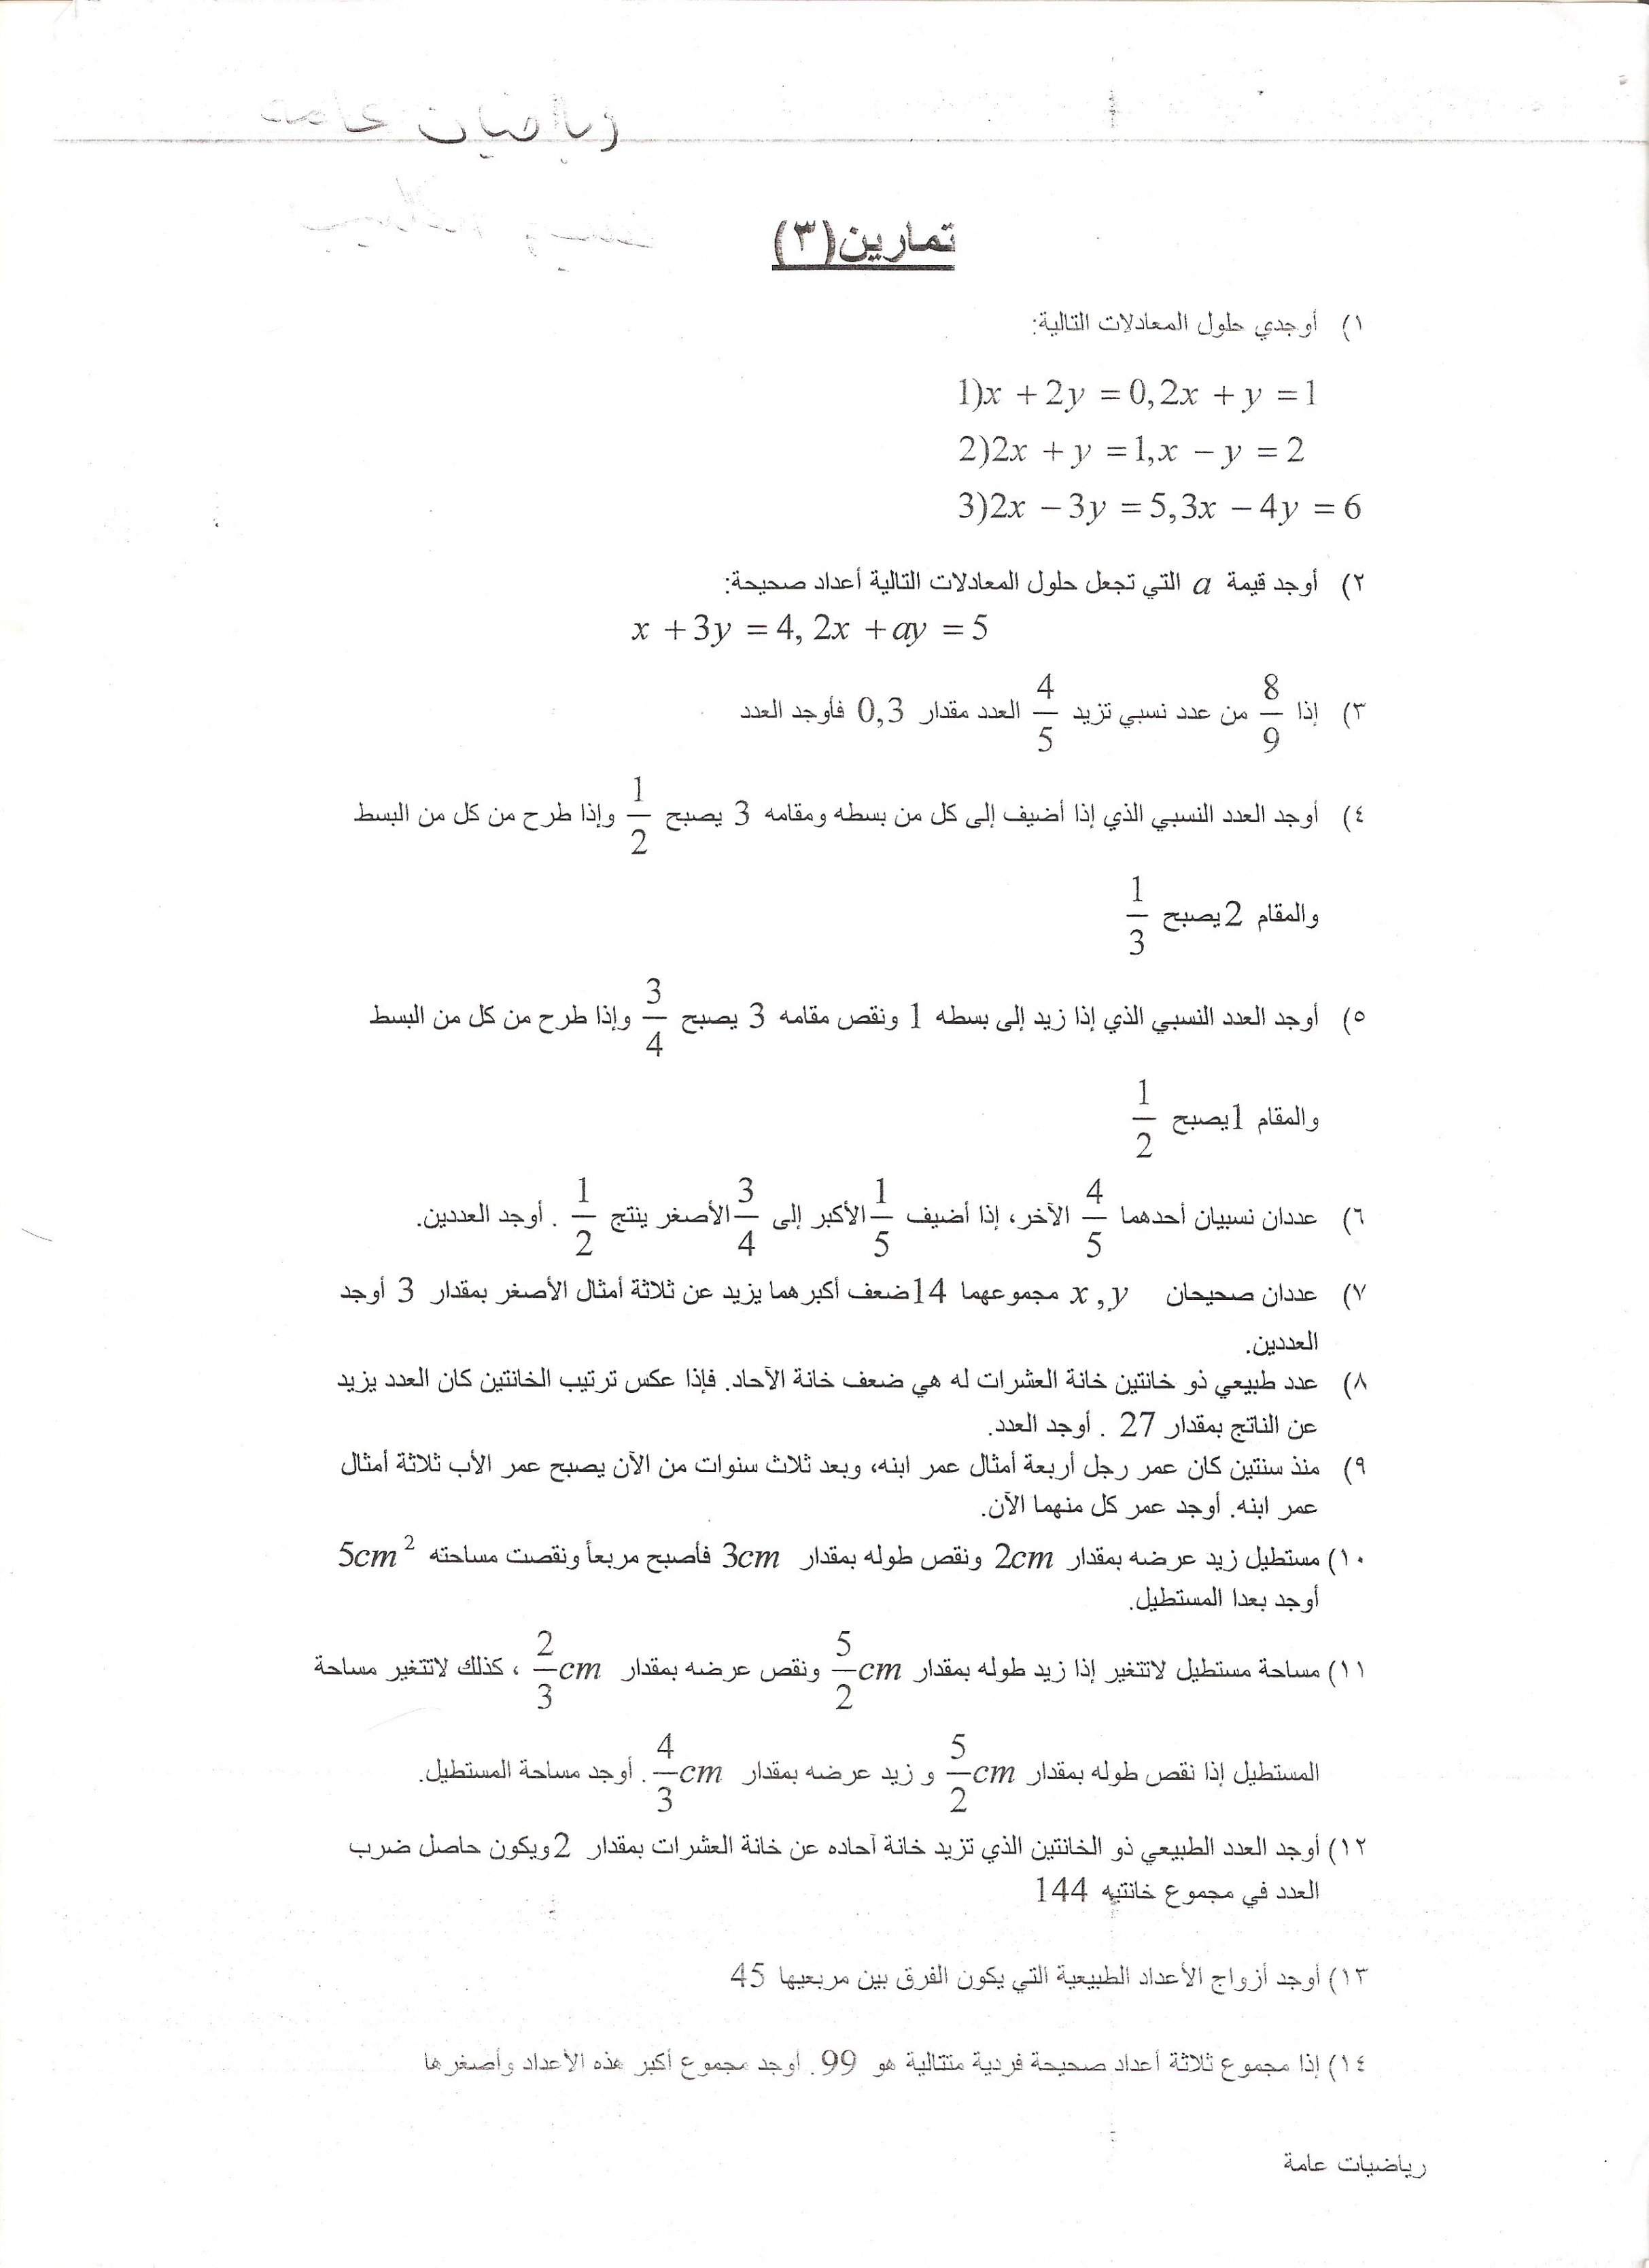 تمارين(٣)
١) أوجدي حلول المعادلات التالية:
1)x + 2y = 0, 2x + y = 1
2)2x + y = 1, x − y = 2
3)2x − 3y = 5, 3x − 4y = 6
٢) أوجد قيمة a التي تجعل حلول المعادلات التالية أعداد صحيحة:
x + 3y = 4, 2x + ay = 5
٣) إذا 8/9 من عدد نسبي تزيد 4/5 العدد مقدار 0,3 فأوجد العدد
٤) أوجد العدد النسبي الذي إذا أضيف إلى كل من بسطه ومقامه 3 يصبح 1/2 وإذا طرح من كل من البسط
والمقام 2 يصبح 1/3
٥) أوجد العدد النسبي الذي إذا زيد إلى بسطه 1 ونقص مقامه 3 يصبح 3/4 وإذا طرح من كل من البسط
والمقام 1 يصبح 1/2
٦) عددان نسبيان أحدهما 4/5 الآخر، إذا أضيف 1/5 الأكبر إلى 3/4 الأصغر ينتج 1/2 . أوجد العددين.
٧) عددان صحيحان x , y مجموعهما 14 ضعف أكبرهما يزيد عن ثلاثة أمثال الأصغر بمقدار 3 أوجد
العددين.
٨) عدد طبيعي ذو خانتين خانة العشرات له هي ضعف خانة الآحاد. فإذا عكس ترتيب الخانتين كان العدد يزيد
عن الناتج بمقدار 27 . أوجد العدد.
٩) منذ سنتين كان عمر رجل أربعة أمثال عمر ابنه، وبعد ثلاث سنوات من الآن يصبح عمر الأب ثلاثة أمثال
عمر ابنه. أوجد عمر كل منهما الآن.
١٠) مستطيل زيد عرضه بمقدار 2cm ونقص طوله بمقدار 3cm فأصبح مربعاً ونقصت مساحته 5cm²
أوجد بعدا المستطيل.
١١) مساحة مستطيل لاتتغير إذا زيد طوله بمقدار 5/2 cm ونقص عرضه بمقدار 2/3 cm ، كذلك لاتتغير مساحة
المستطيل إذا نقص طوله بمقدار 5/2 cm و زيد عرضه بمقدار 4/3 cm . أوجد مساحة المستطيل.
١٢) أوجد العدد الطبيعي ذو الخانتين الذي تزيد خانة آحاده عن خانة العشرات بمقدار 2 ويكون حاصل ضرب
العدد في مجموع خانتيه 144
١٣) أوجد أزواج الأعداد الطبيعية التي يكون الفرق بين مربعيها 45
١٤) إذا مجموع ثلاثة أعداد صحيحة فردية متتالية هو 99. أوجد مجموع أكبر هذه الأعداد وأصغرها
رياضيات عامة